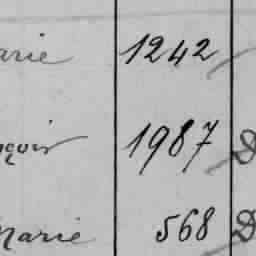 arie 1242
nçois 1987 D
Marie 568 D